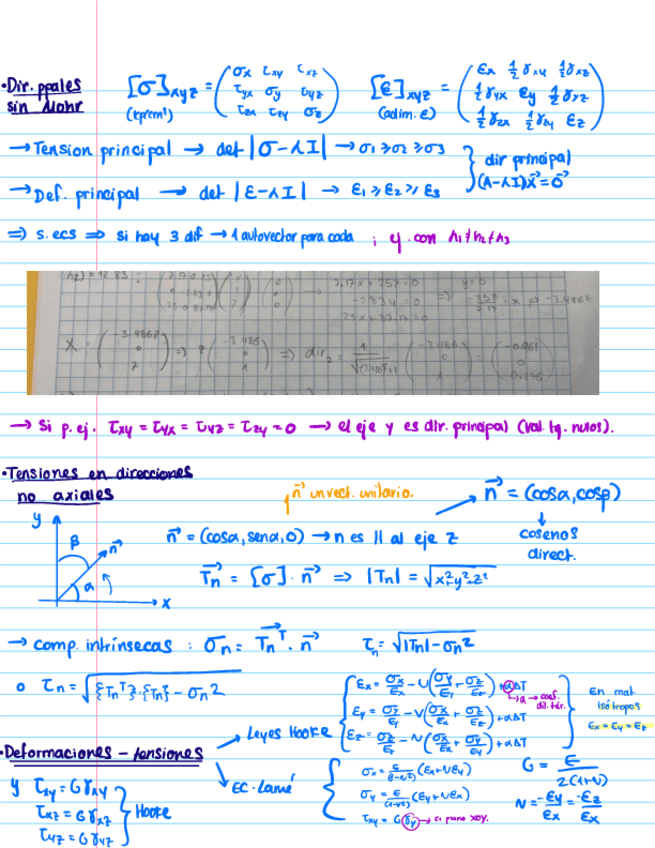 •Dir. ppales sin Mohr
[σ]xyz = (σx τxy τxz / τyx σy τyz / τzx τzy σz)
(kp/cm²)
[ε]xyz = (εx ½γxy ½γxz / ½γyx εy ½γyz / ½γzx ½γzy εz)
(adim. ε)
→ Tension principal → det |σ-λI| → σ1 ≥ σ2 ≥ σ3
→ Def. principal → det |ε-λI| → ε1 ≥ ε2 ≥ ε3
} dir principal (A-λI)x⃗ = 0⃗
⇒ s. ecs ⇒ si hay 3 dif → 1 autovector para cada
y con λ1≠λ2≠λ3
7.17x + 25z = 0
-7.83y = 0
25x + 87.17z = 0
y = 0
⇒ dir2 =
→ Si p.ej. τxy = τyx = τyz = τzy = 0 → el eje y es dir. principal (val. tg. nulos).
•Tensiones en direcciones no axiales
n⃗ un vect. unitario.
n⃗ = (cosα, cosβ)
↓
cosenos direct.
y
β
n⃗
α
x
n⃗ = (cosα, senα, 0) → n es || al eje z
T⃗n = [σ] · n⃗ ⇒ |Tn| = √x²+y²+z²
→ comp. intrínsecas : σn = T⃗nᵀ · n⃗
τn = √|Tn| - σn²
o τn = √{Tnᵀ}·{Tn} - σn2
•Deformaciones - tensiones
→ Leyes Hooke
εx = σx/Ex - ν(σy/Ey + σz/Ez) + αΔT
→ α → coef. dil. tér.
εy = σy/Ey - ν(σx/Ex + σz/Ez) + αΔT
εz = σz/Ez - ν(σx/Ex + σy/Ey) + αΔT
En mat isótropos
Ex = Ey = Ez
→ EC. Lamé
σx = E/(1-ν²) (εx + νεy)
σy = E/(1-ν²) (εy + νεx)
τxy = Gγy → si plano xoy.
G = E/2(1+ν)
ν = -εy/εx = -εz/εx
y τxy = Gγxy
τxz = Gγxz
τyz = Gγyz
} Hooke